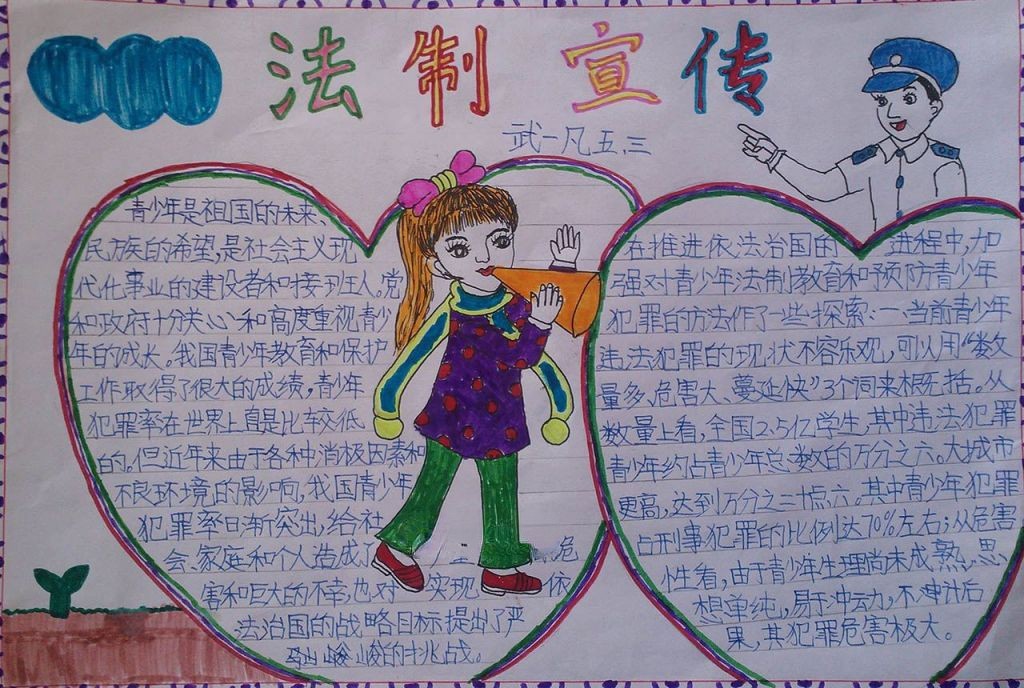 法制宣传
武一凡 五.三
青少年是祖国的未来、
民族的希望,是社会主义现
代化事业的建设者和接班人。党
和政府十分关心和高度重视青少
年的成长。我国青少年教育和保护
工作取得了很大的成绩,青少年
犯罪率在世界上自是比较低
的。但近年来由于各种消极因素和
不良环境的影响,我国青少年
犯罪率日渐突出,给社
会、家庭和个人造成了 危
害和巨大的不幸,也对 实现 依
法治国的战略目标提出了严
峻的挑战。
在推进依法治国的 进程中,加
强对青少年法制教育和预防青少年
犯罪的方法作了一些探索:一、当前青少年
违法犯罪的现状不容乐观,可以用“数
量多、危害大、蔓延快”3个词来概括。从
数量上看,全国2.5亿学生,其中违法犯罪
青少年约占青少年总数的万分之六。大城市
更高,达到万分之二十点六。其中青少年犯罪
占刑事犯罪的比例达70%左右;从危害
性看,由于青少年生理尚未成熟,思
想单纯,易于冲动,不计后
果,其犯罪危害极大。